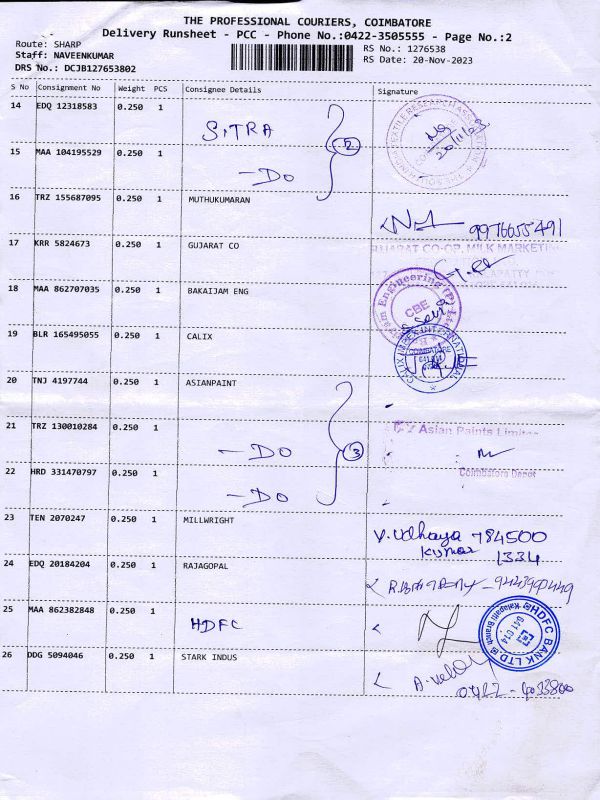 THE PROFESSIONAL COURIERS, COIMBATORE
Delivery Runsheet - PCC - Phone No.:0422-3505555 - Page No.:2
Route: SHARP
RS No.: 1276538
Staff: NAVEENKUMAR
RS Date: 20-Nov-2023
DRS No.: DCJB127653802
S No Consignment No Weight PCS Consignee Details Signature
14 EDQ 12318583 0.250 1 SITRA
20/11/23
15 MAA 104195529 0.250 1 - DO 2
16 TRZ 155687095 0.250 1 MUTHUKUMARAN
9976655491
17 KRR 5824673 0.250 1 GUJARAT CO
GUJARAT CO-OP. MILK MARKETING
18 MAA 862707035 0.250 1 BAKAIJAM ENG
Engineering (P) CBE
19 BLR 165495055 0.250 1 CALIX
CALIX IMPEX INTERNATIONAL COIMBATORE
20 TNJ 4197744 0.250 1 ASIANPAINT
21 TRZ 130010284 0.250 1 - DO 3
Asian Paints Limited
22 HRD 331470797 0.250 1 - DO
Coimbatore Depot
23 TEN 2070247 0.250 1 MILLWRIGHT
V. Udhaya 784500
Kumar 1334
24 EDQ 20184204 0.250 1 RAJAGOPAL
25 MAA 862382848 0.250 1 HDFC
HDFC BANK LTD. Kalapatti Branch 641 014
26 DDG 5094046 0.250 1 STARK INDUS
0422 - 4033800